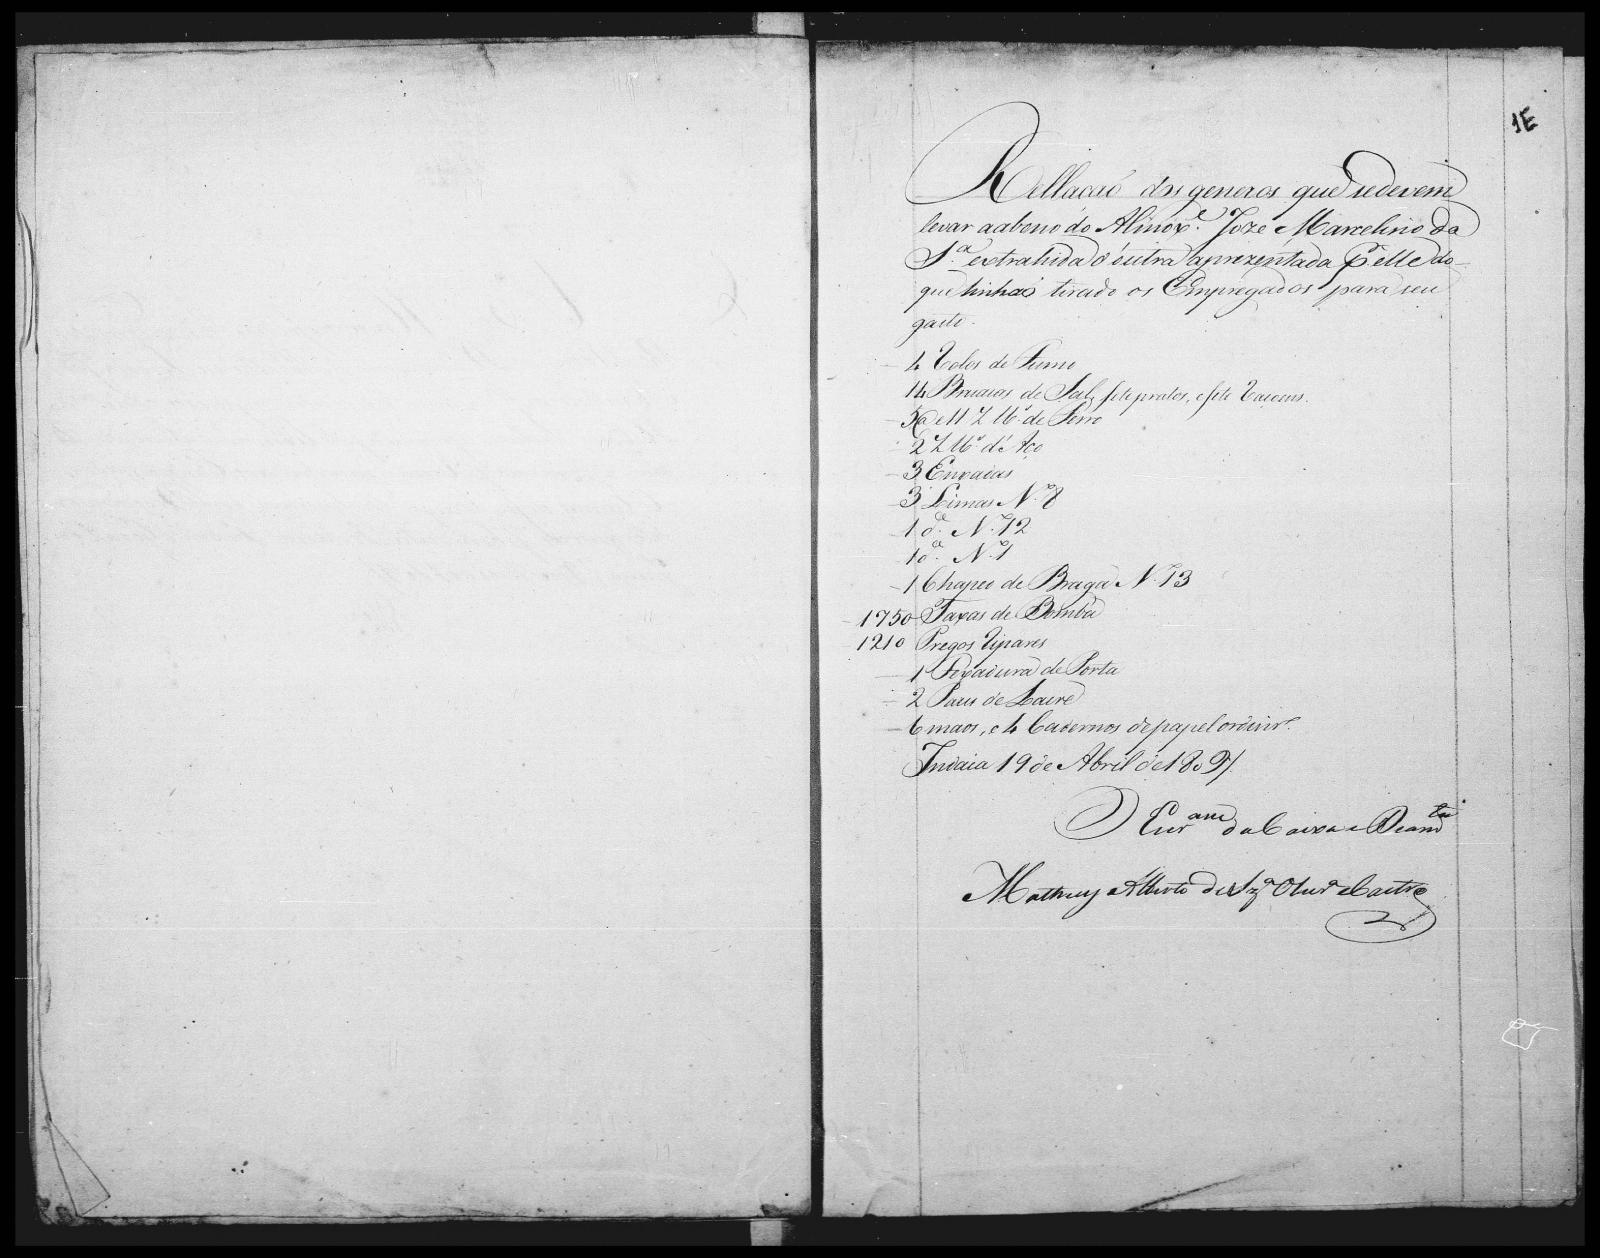 1E
Rellacaõ dos generos que sedevem
levar aabono do Almox.e Joze Marcelino da
S.a extrahida d'outra aprezentada P.r elle do
que tinhaõ tirado os Empregados para seu
gasto.
4 Rolos de Fumo
14 Bruacas de Sal, sete pratos, e sete
5 @ e 11 lb.s de Ferro
2 lb.s d'Aço
3 Enxadas
3 Limas N.o 8
1 d.a N.o 12
1 d.a N.o 1
1 Chapeo de Braga N.o 13
1750 Taxas de Bomba
1210 Pregos Ripares
1 Fexadura de Porta
2 Paus de Lacre
6 maos, e 4 Cadernos de papel ordinr.o
Indaia 19 de Abril de 1809
O Escr.am da Caixa e Diam.tes
Matheus Alberto de Sz.a Olivr.a e Castro